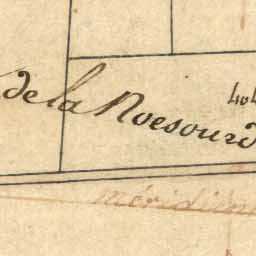 de la Noesourd
404
méridien